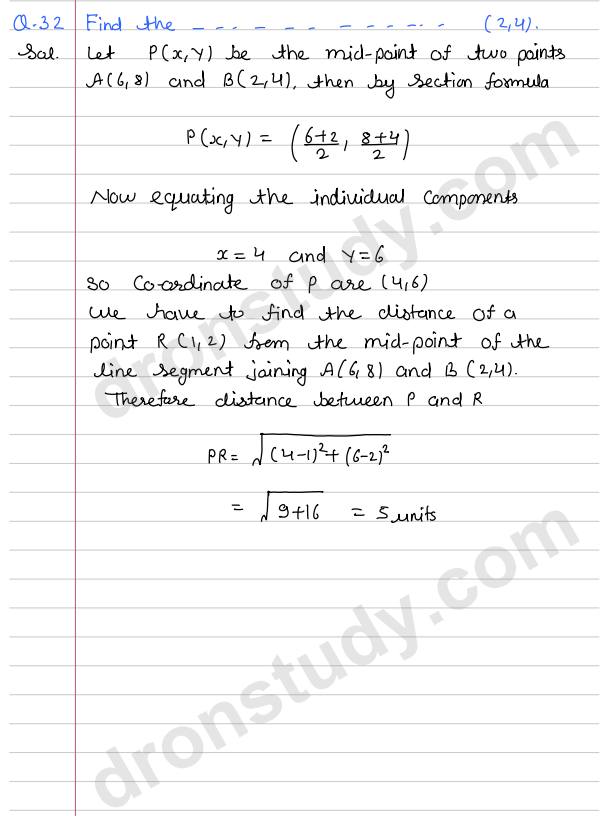 Q.32 Find the _ _ _ _ _ _ _ _ _ _ _ _ (2,4).
Sol. Let P(x,y) be the mid-point of two points
A(6,8) and B(2,4), then by section formula
P(x,y) = (6+2/2, 8+4/2)
Now equating the individual components
x=4 and y=6
So Co-ordinate of P are (4,6)
We have to find the distance of a
point R(1,2) from the mid-point of the
line segment joining A(6,8) and B(2,4).
Therefore distance between P and R
PR = √(4-1)²+(6-2)²
= √9+16 = 5 units
dronstudy.com
dronstudy.com